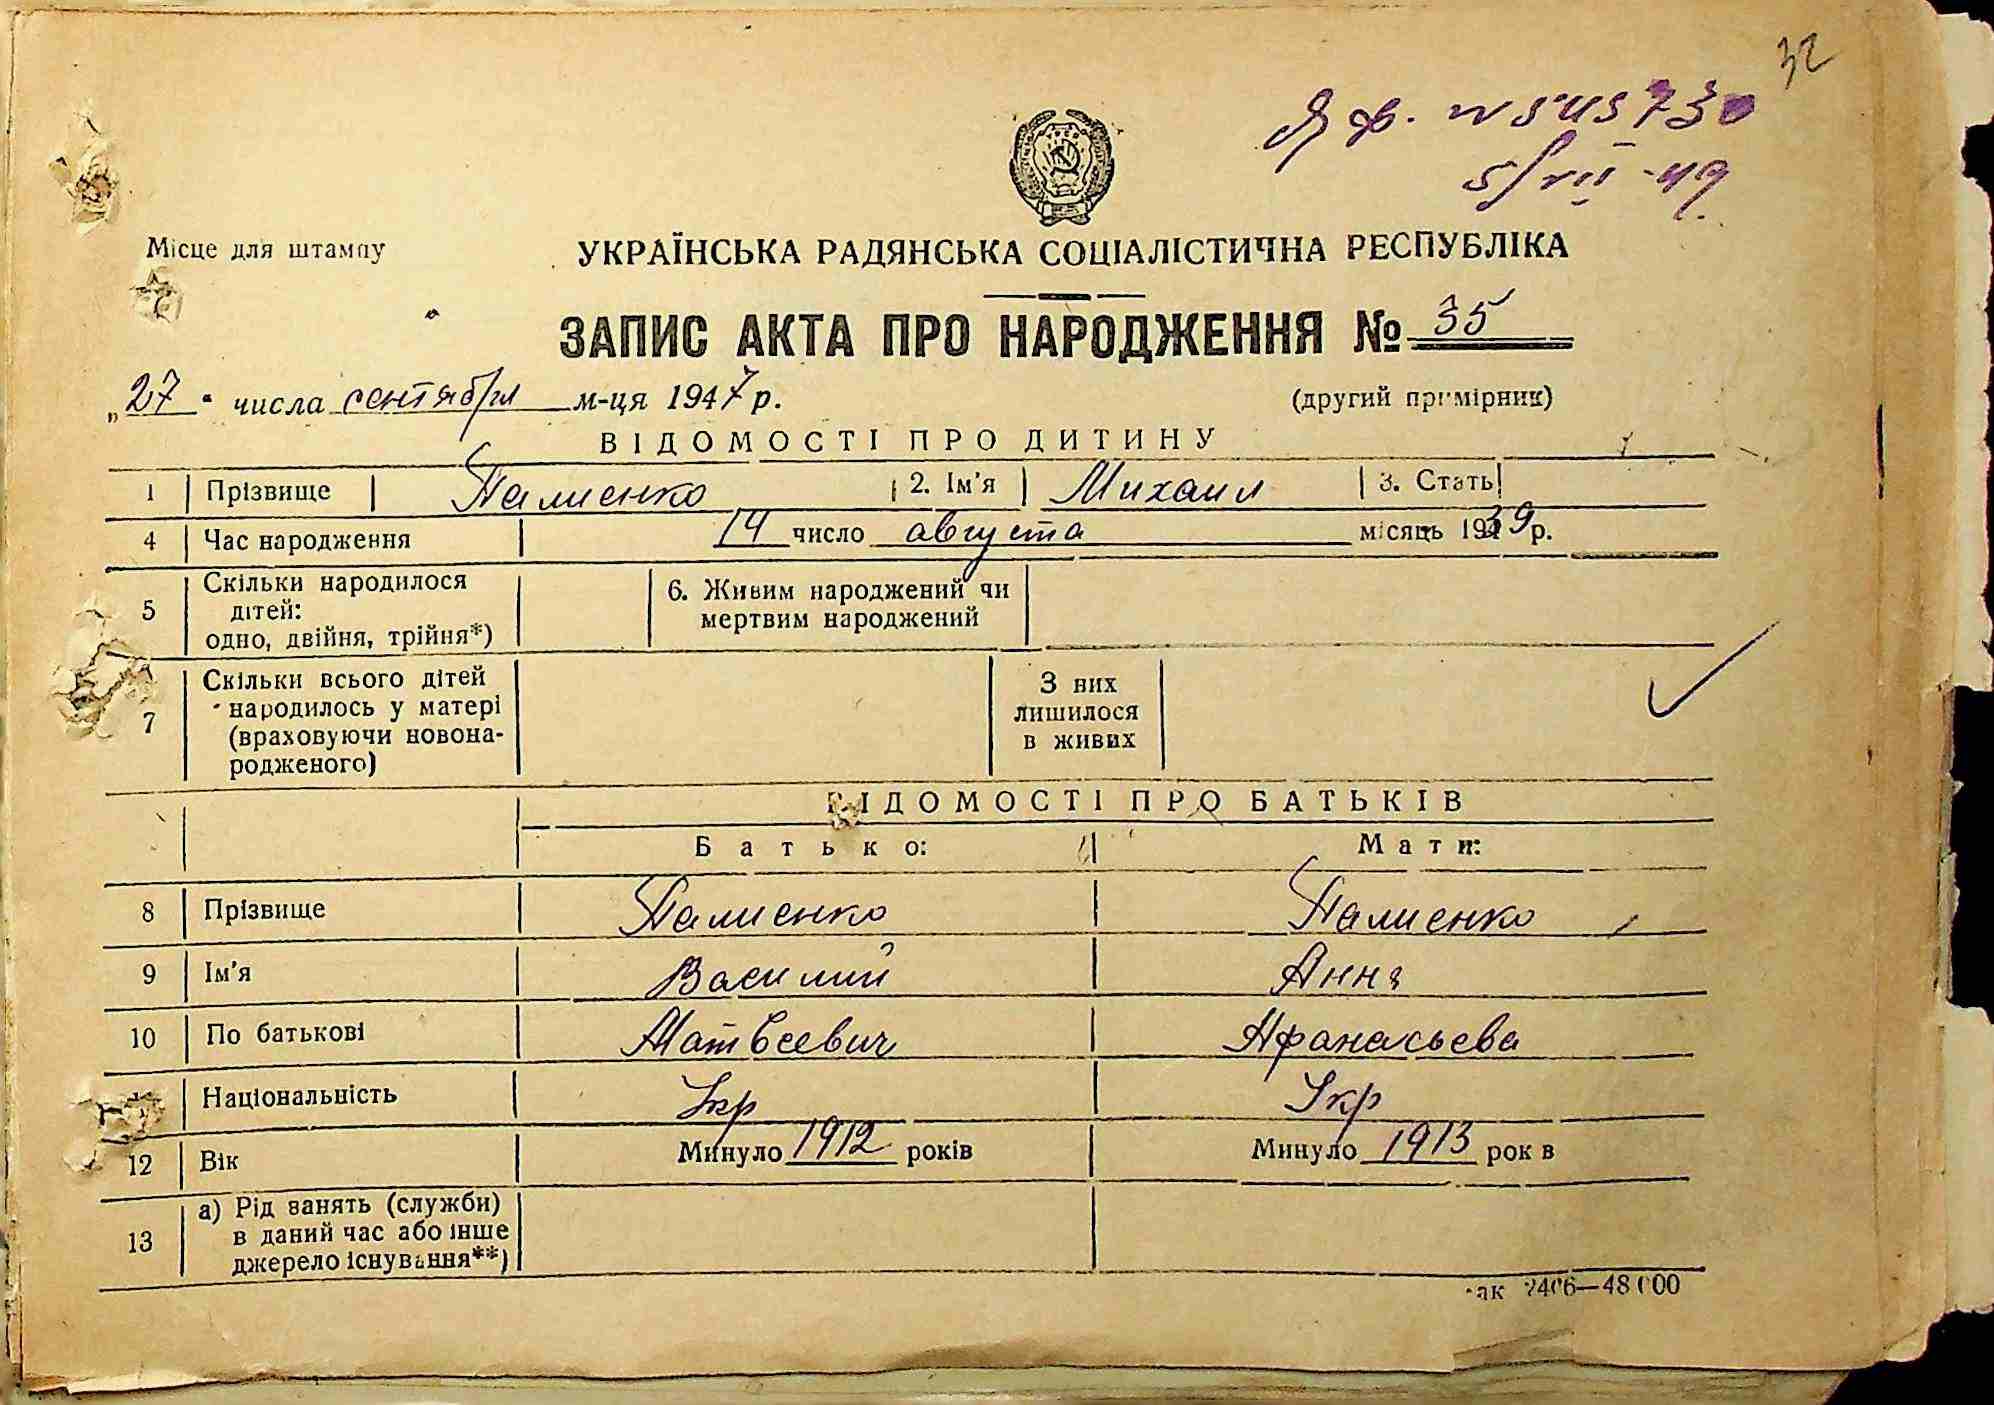 32
5/VII-49
Місце для штампу
УКРАЇНСЬКА РАДЯНСЬКА СОЦІАЛІСТИЧНА РЕСПУБЛІКА
ЗАПИС АКТА ПРО НАРОДЖЕННЯ № 35
„27“ числа сентября м-ця 1947 р. (другий примірник)
ВІДОМОСТІ ПРО ДИТИНУ
1 Прізвище Палиенко 2. Ім'я Михаил 3. Стать
4 Час народження 14 число августа місяць 1939 р.
5 Скільки народилося дітей: одно, двійня, трійня*) 6. Живим народжений чи мертвим народжений
7 Скільки всього дітей народилось у матері (враховуючи новонародженого) З них лишилося в живих
ВІДОМОСТІ ПРО БАТЬКІВ
Батько: Мати:
8 Прізвище Палиенко Палиенко
9 Ім'я Василий Анна
10 По батькові Матвеевич Афанасьева
Національність Укр Укр
12 Вік Минуло 1912 років Минуло 1913 рок в
13 а) Рід занять (служби) в даний час або інше джерело існування**)